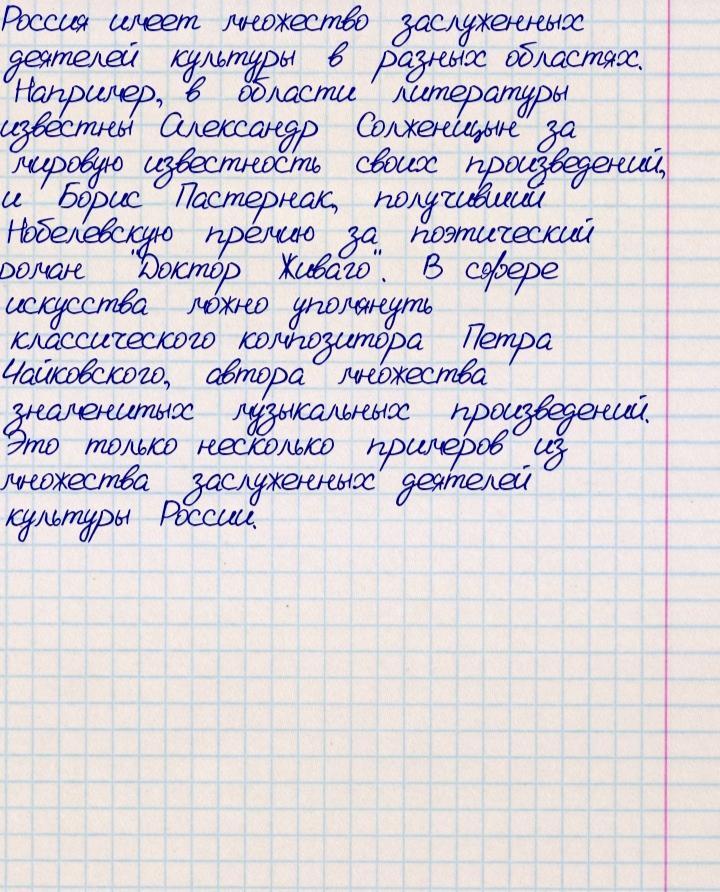 Россия имеет множество заслуженных
деятелей культуры в разных областях.
Например, в области литературы
известны Александр Солженицын за
мировую известность своих произведений,
и Борис Пастернак, получивший
Нобелевскую премию за поэтический
роман "Доктор Живаго". В сфере
искусства можно упомянуть
классического композитора Петра
Чайковского, автора множества
знаменитых музыкальных произведений.
Это только несколько примеров из
множества заслуженных деятелей
культуры России.